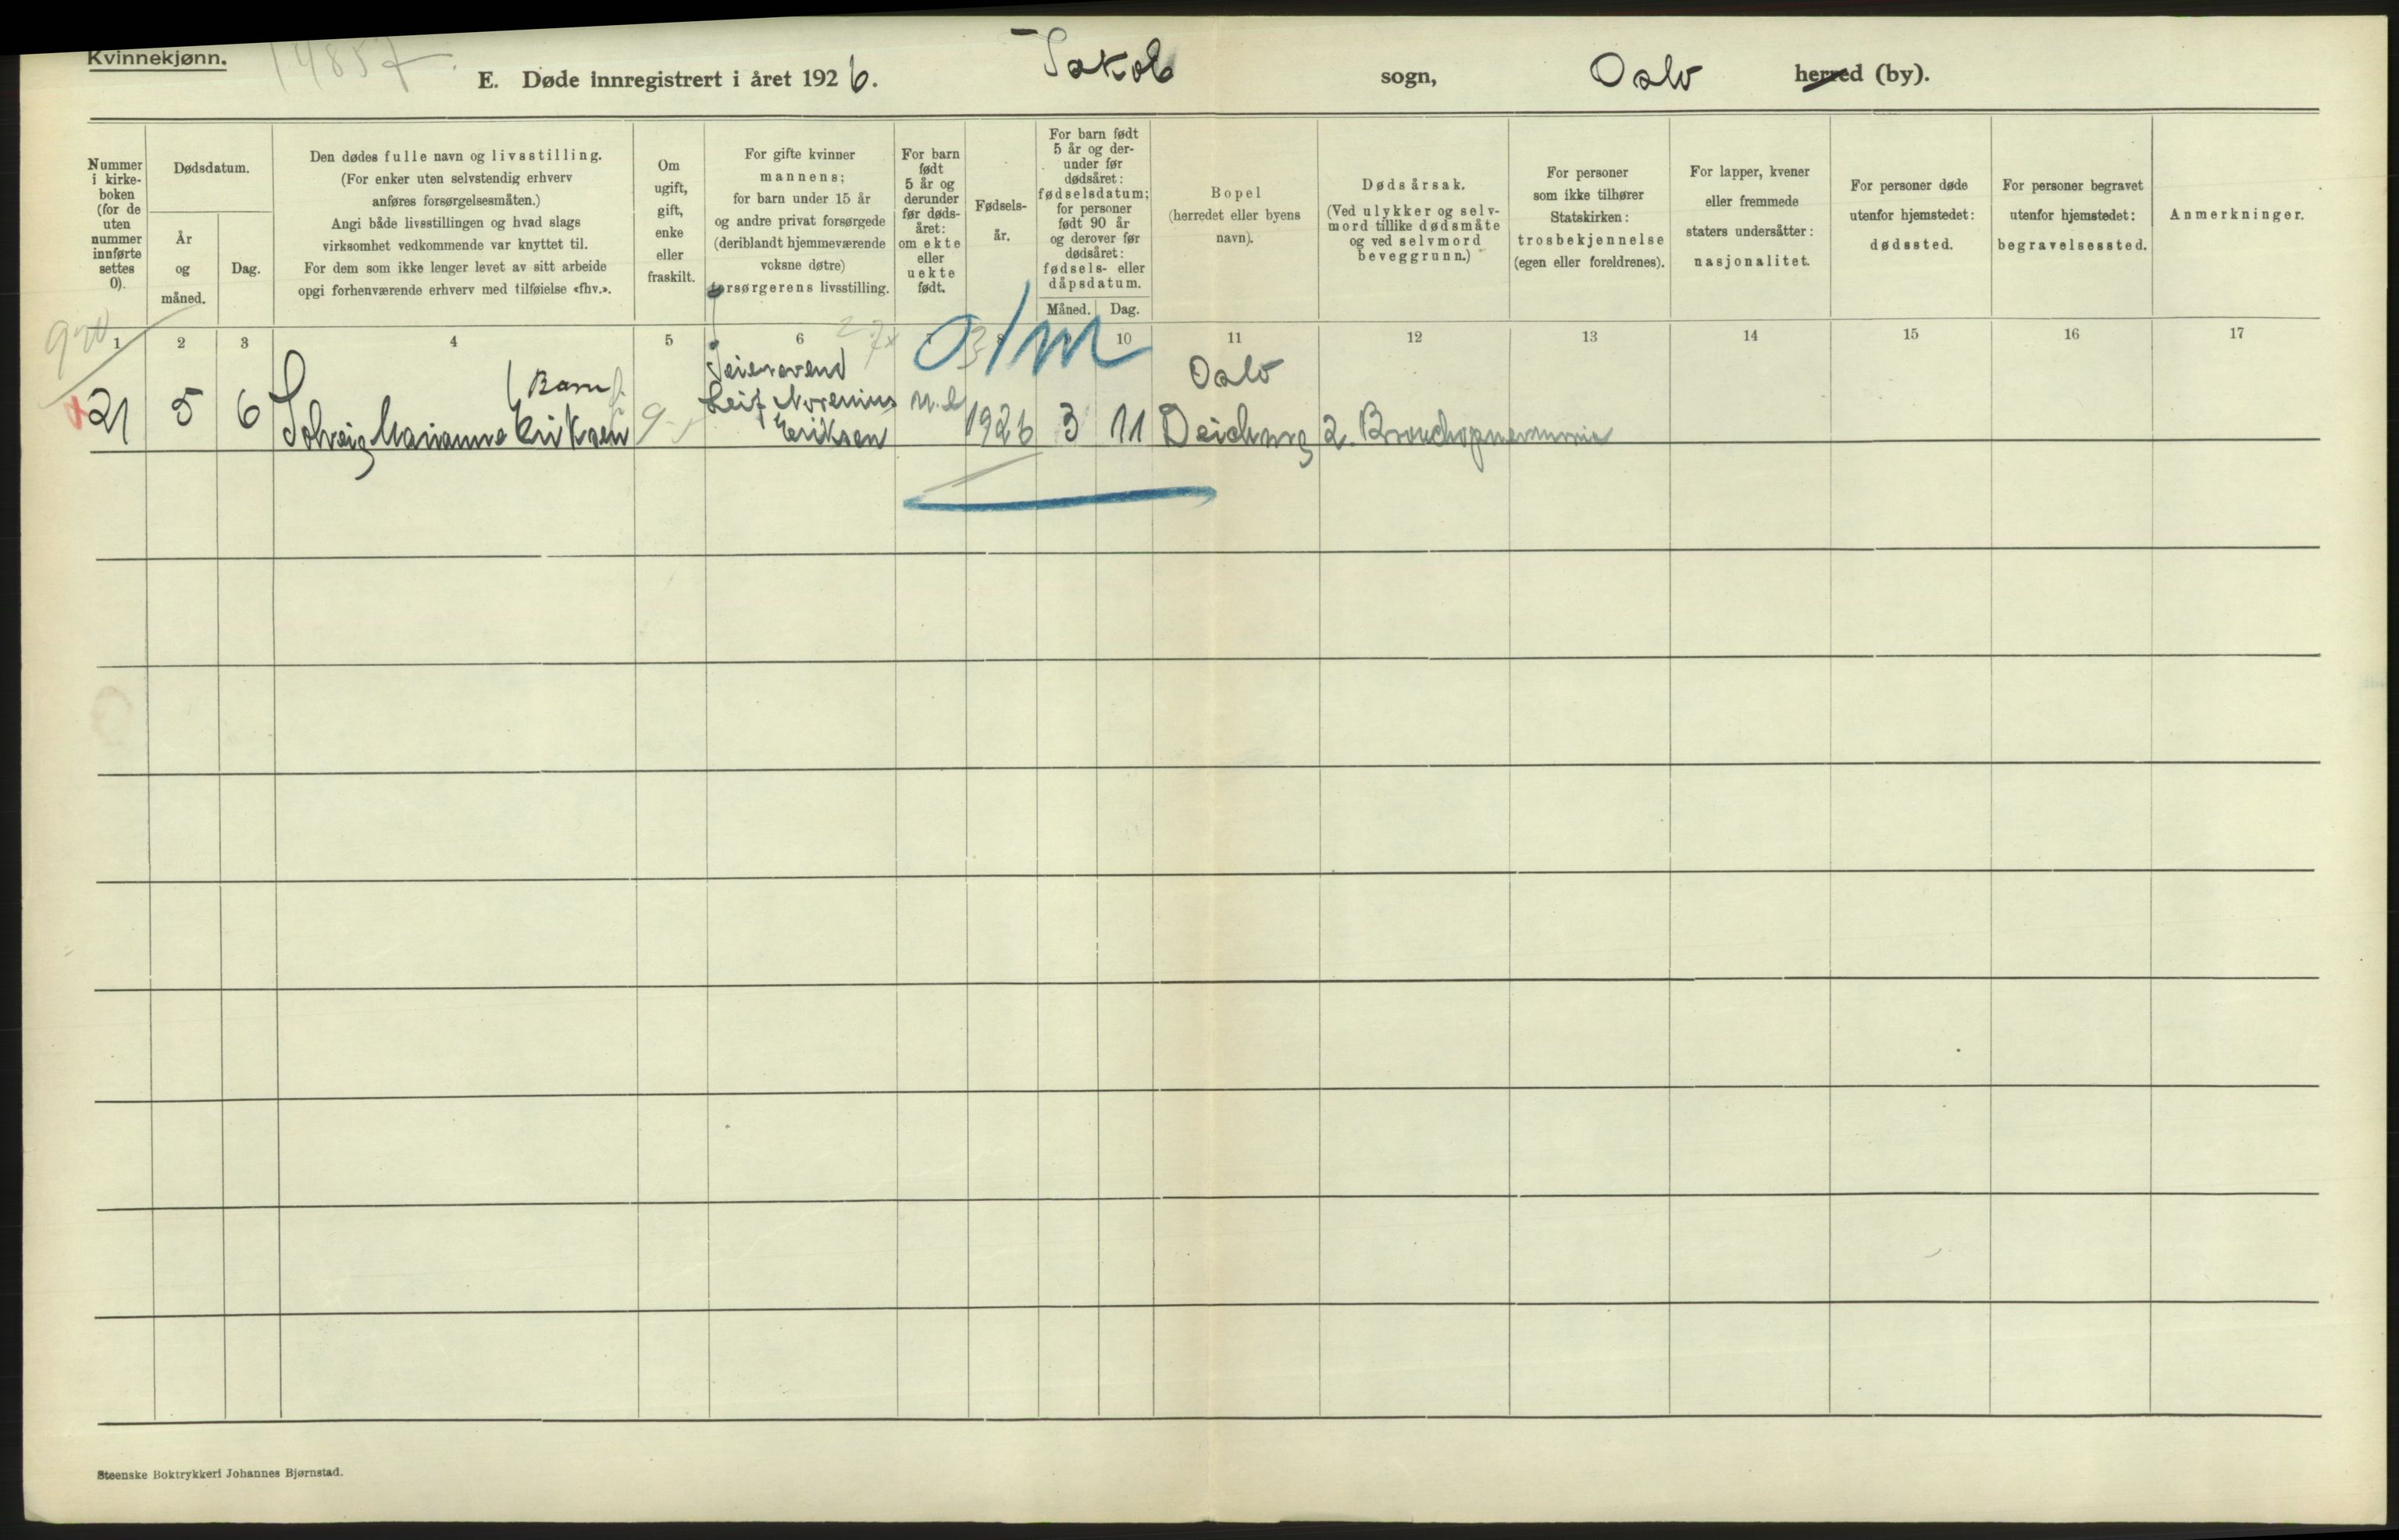 Kvinnekjønn.
14857.
E. Døde innregistrert i året 1926. Jakob sogn, Oslo herred (by).
Nummer i kirke-boken (for de uten nummer innførte settes 0).
Dødsdatum.
År og måned.
Dag.
Den dødes fulle navn og livsstilling.
(For enker uten selvstendig erhverv
anføres forsørgelsesmåten.)
Angi både livsstillingen og hvad slags
virksomhet vedkommende var knyttet til.
For dem som ikke lenger levet av sitt arbeide
opgi forhenværende erhverv med tilføielse «fhv.».
Om
ugift,
gift,
enke
eller
fraskilt.
For gifte kvinner
mannens;
for barn under 15 år
og andre privat forsørgede
(deriblandt hjemmeværende
voksne døtre)
forsørgerens livsstilling.
For barn
født
5 år og
derunder
før døds-
året:
om ekte
eller
uekte
født.
Fødsels-
år.
For barn født
5 år og der-
under før
dødsåret:
fødselsdatum;
for personer
født 90 år
og derover før
dødsåret:
fødsels- eller
dåpsdatum.
Måned. Dag.
Bopel
(herredet eller byens
navn).
Dødsårsak.
(Ved ulykker og selv-
mord tillike dødsmåte
og ved selvmord
beveggrunn.)
For personer
som ikke tilhører
Statskirken:
trosbekjennelse
(egen eller foreldrenes).
For lapper, kvener
eller fremmede
staters undersåtter:
nasjonalitet.
For personer døde
utenfor hjemstedet:
dødssted.
For personer begravet
utenfor hjemstedet:
begravelsessted.
Anmerkninger.
1 2 3 4 5 6 8 10 11 12 13 14 15 16 17
0/m
(Barn) Oslo
Leif Norenius
21 5 6 Solveig Marianne Eriksen Eriksen 1926 3 11 Deichmsg 2. Bronchopneumonie
Steenske Boktrykkeri Johannes Bjørnstad.